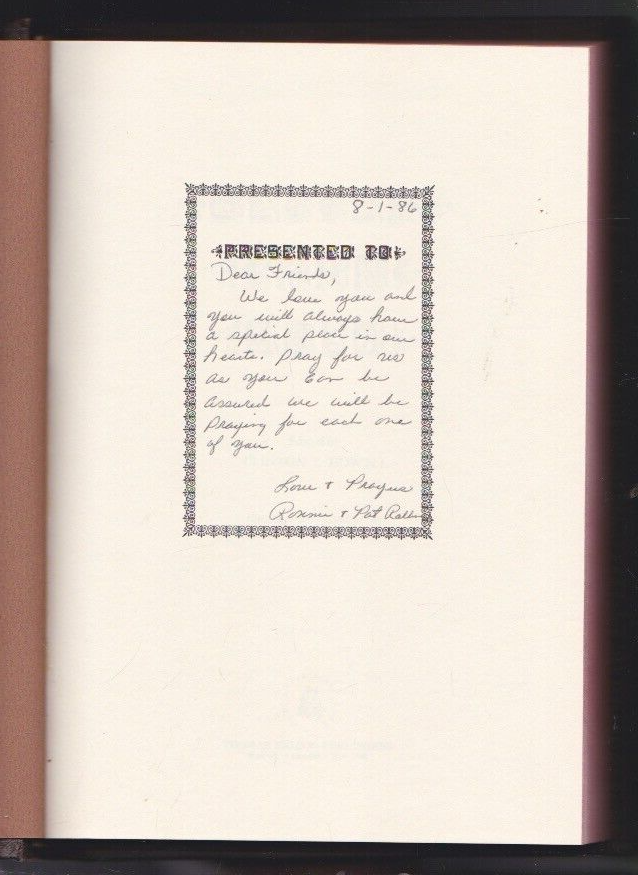 8-1-86
PRESENTED TO
Dear Friends,
We love you and
you will always have
a special place in our
hearts. Pray for us
as you can be
assured we will be
praying for each one
of you.
Love & Prayers
Ronnie & Pat